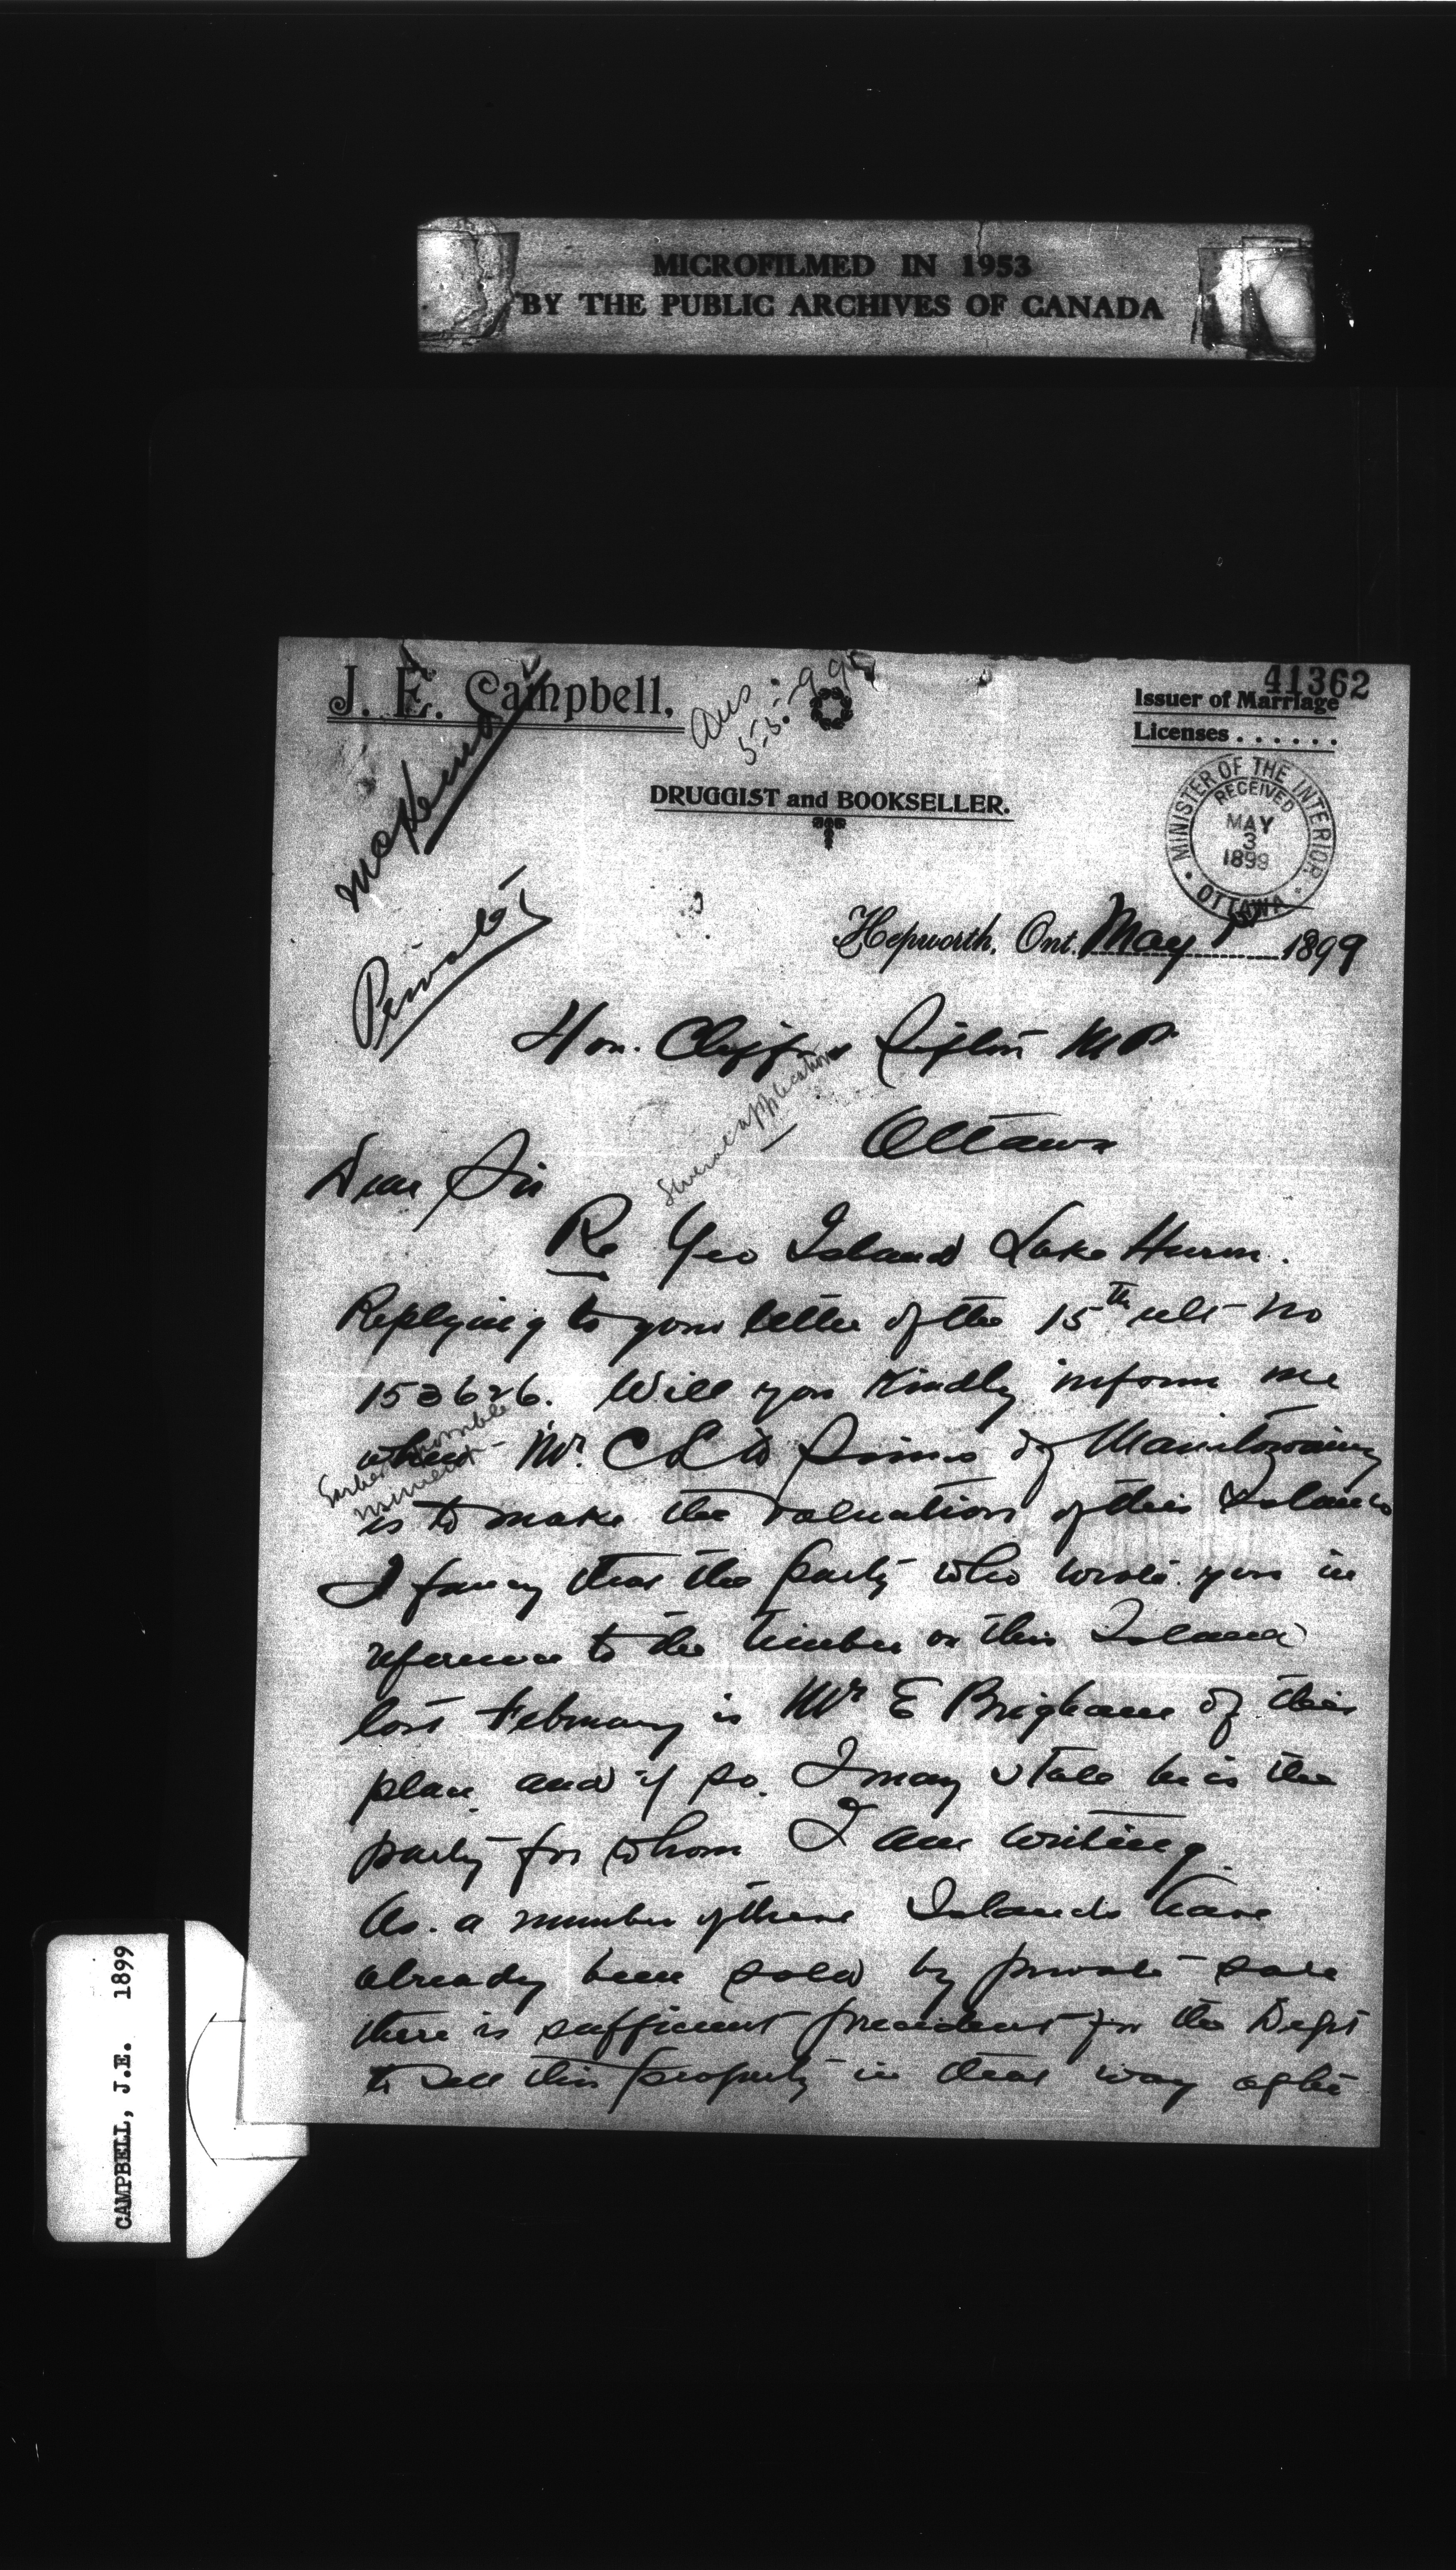 MICROFILMED IN 1953
BY THE PUBLIC ARCHIVES OF CANADA
41362
J. E. Campbell,
Issuer of Marriage
Licenses . . . . . .
Ans
5-5-99
McKenna
DRUGGIST and BOOKSELLER.
MINISTER OF THE INTERIOR
RECEIVED
MAY
3
1899
OTTAWA
Private
Hepworth, Ont. May 1st 1899
Hon. Clifford Sifton M P
Ottawa
Several applications
Dear Sir
Re Yeo Island Lake Huron.
Replying to your letter of the 15th ult No
153626. Will you Kindly inform me
when Mr. C L D Sims of Manitowaning
Earliest possible
moment
is to make the valuation of this Island
I fancy that the party who wrote you in
reference to the timber on this Island
last February is Mr E Brigham of this
place and if so. I may state he is the
party for whom I am writing.
As a number of these Islands have
already been sold by private sale
there is sufficient precedent for the Dept
to sell this property in that way after
CAMPBELL, J.E. 1899